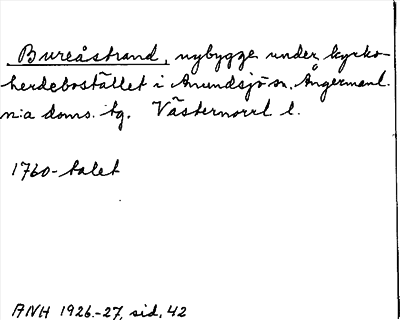 Bureåstrand, nybygge under kyrko-
herdebostället i Anundsjö sn, Ångermanl.
n:a doms. tg. Västernorrl l.
1760-talet
ANH 1926-27, sid. 42